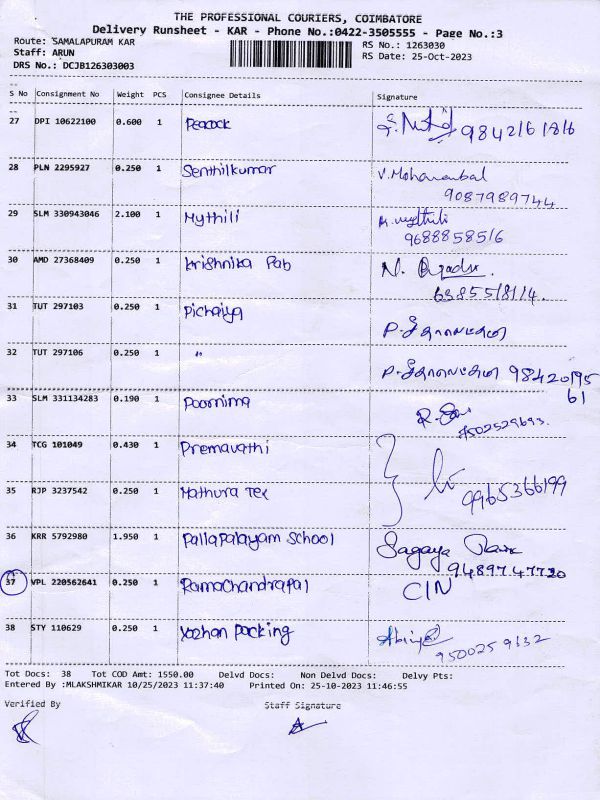 THE PROFESSIONAL COURIERS, COIMBATORE
Delivery Runsheet - KAR - Phone No.:0422-3505555 - Page No.:3
Route: SAMALAPURAM KAR RS No.: 1263030
Staff: ARUN RS Date: 25-Oct-2023
DRS No.: DCJB126303003
S No Consignment No Weight PCS Consignee Details Signature
27 DPI 10622100 0.600 1 Peacock 9842161816
28 PLN 2295927 0.250 1 Senthilkumar V. Mohanambal
9087989744
29 SLM 330943046 2.100 1 Mythili
9688858516
30 AMD 27368409 0.250 1 Krishnika Pab N.
6385518114.
31 TUT 297103 0.250 1 Pichaiya
32 TUT 297106 0.250 1 " 98420195
61
33 SLM 331134283 0.190 1 Poornima
7502529693.
34 TCG 101049 0.430 1 Premavathi
35 RJP 3237542 0.250 1 Mathura Tex 9965366199
36 KRR 5792980 1.950 1 Pallapalayam School Sagaya
9489747720
37 VPL 220562641 0.250 1 Ramachandrapal C/N
38 STY 110629 0.250 1 Yazhan Packing
9500259332
Tot Docs: 38 Tot COD Amt: 1550.00 Delvd Docs: Non Delvd Docs: Delvy Pts:
Entered By :MLAKSHMIKAR 10/25/2023 11:37:40 Printed On: 25-10-2023 11:46:55
Verified By Staff Signature